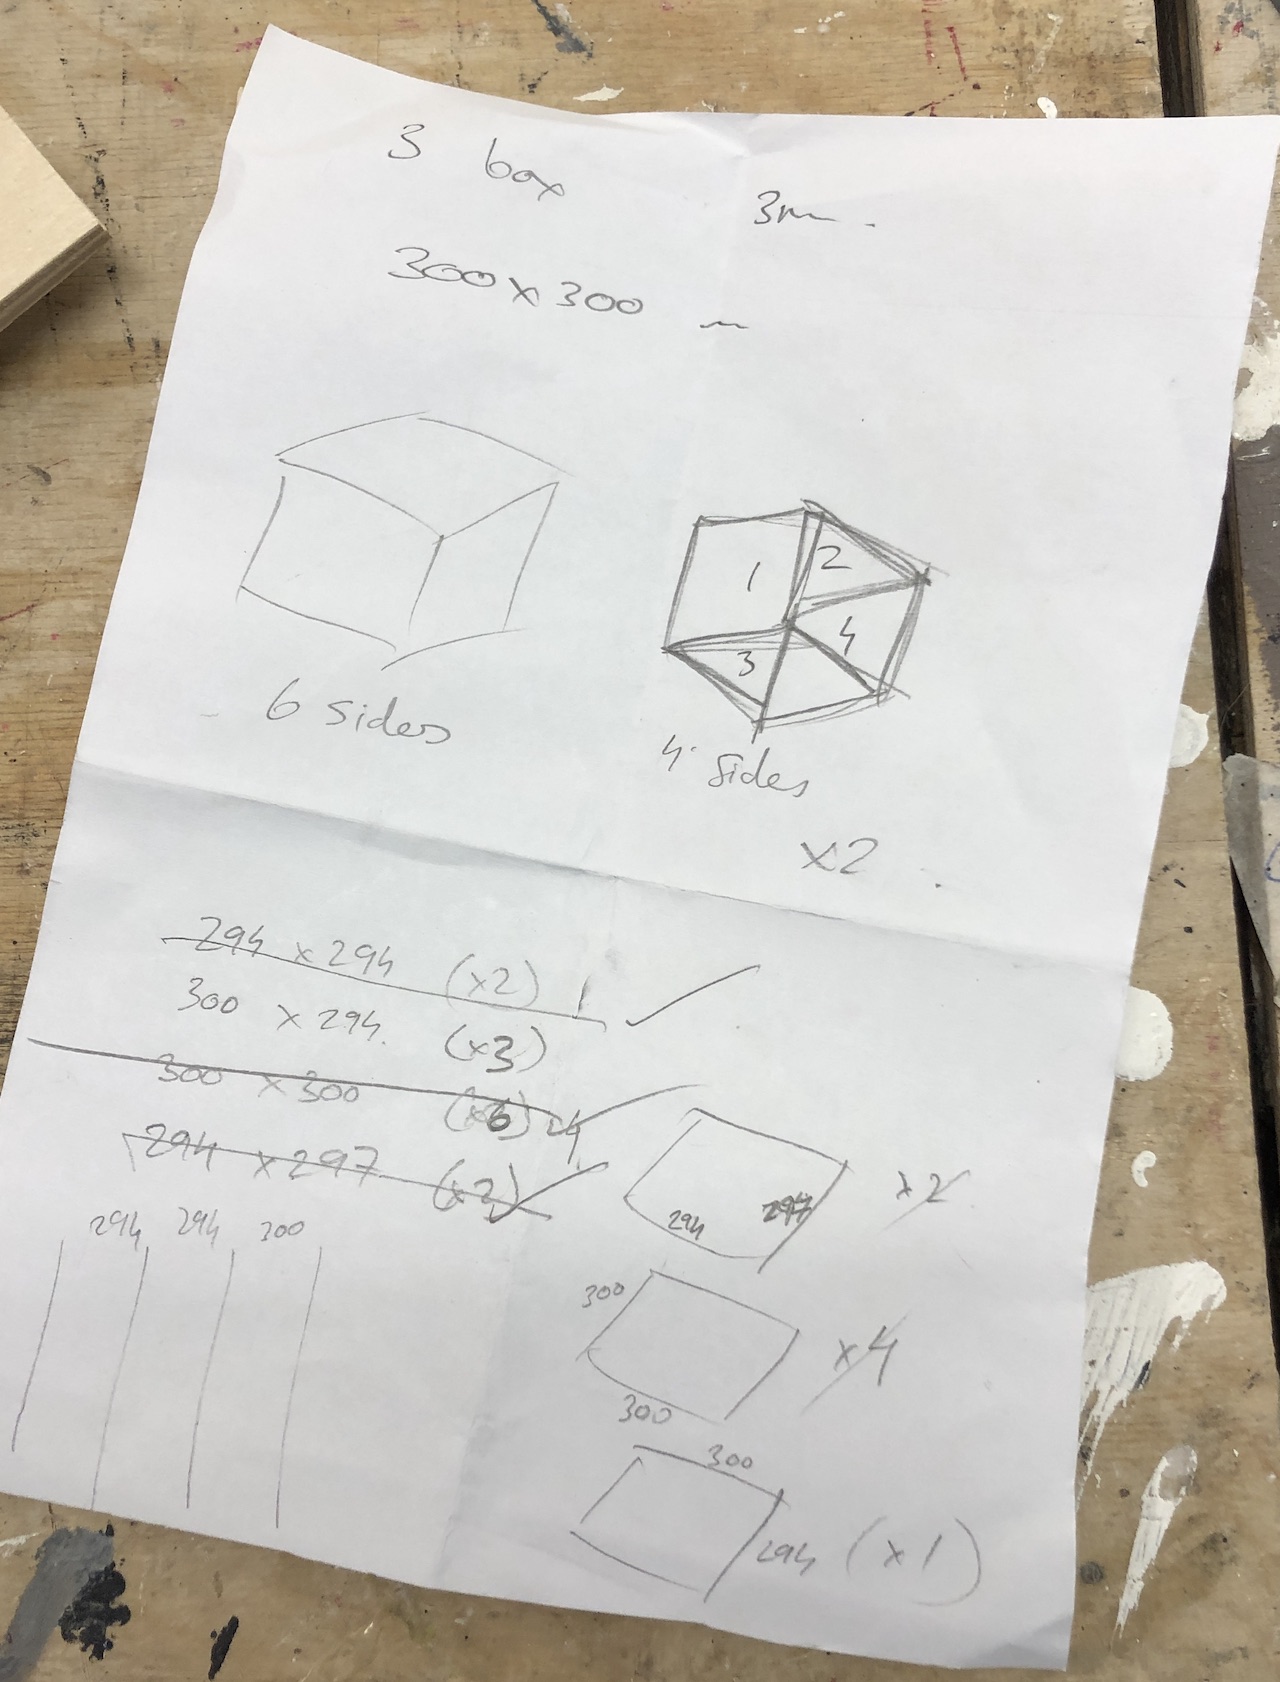 3 box
3mm.
300 x 300 mm
1
2
3
4
6 sides
4 sides
x2
294 x 294 (x2) 1
300 x 294 (x3)
300 x 300 (x6) 4
294 x 297 (x2)
294 294 300
294 297 x2
300
300 x4
300
294 (x1)